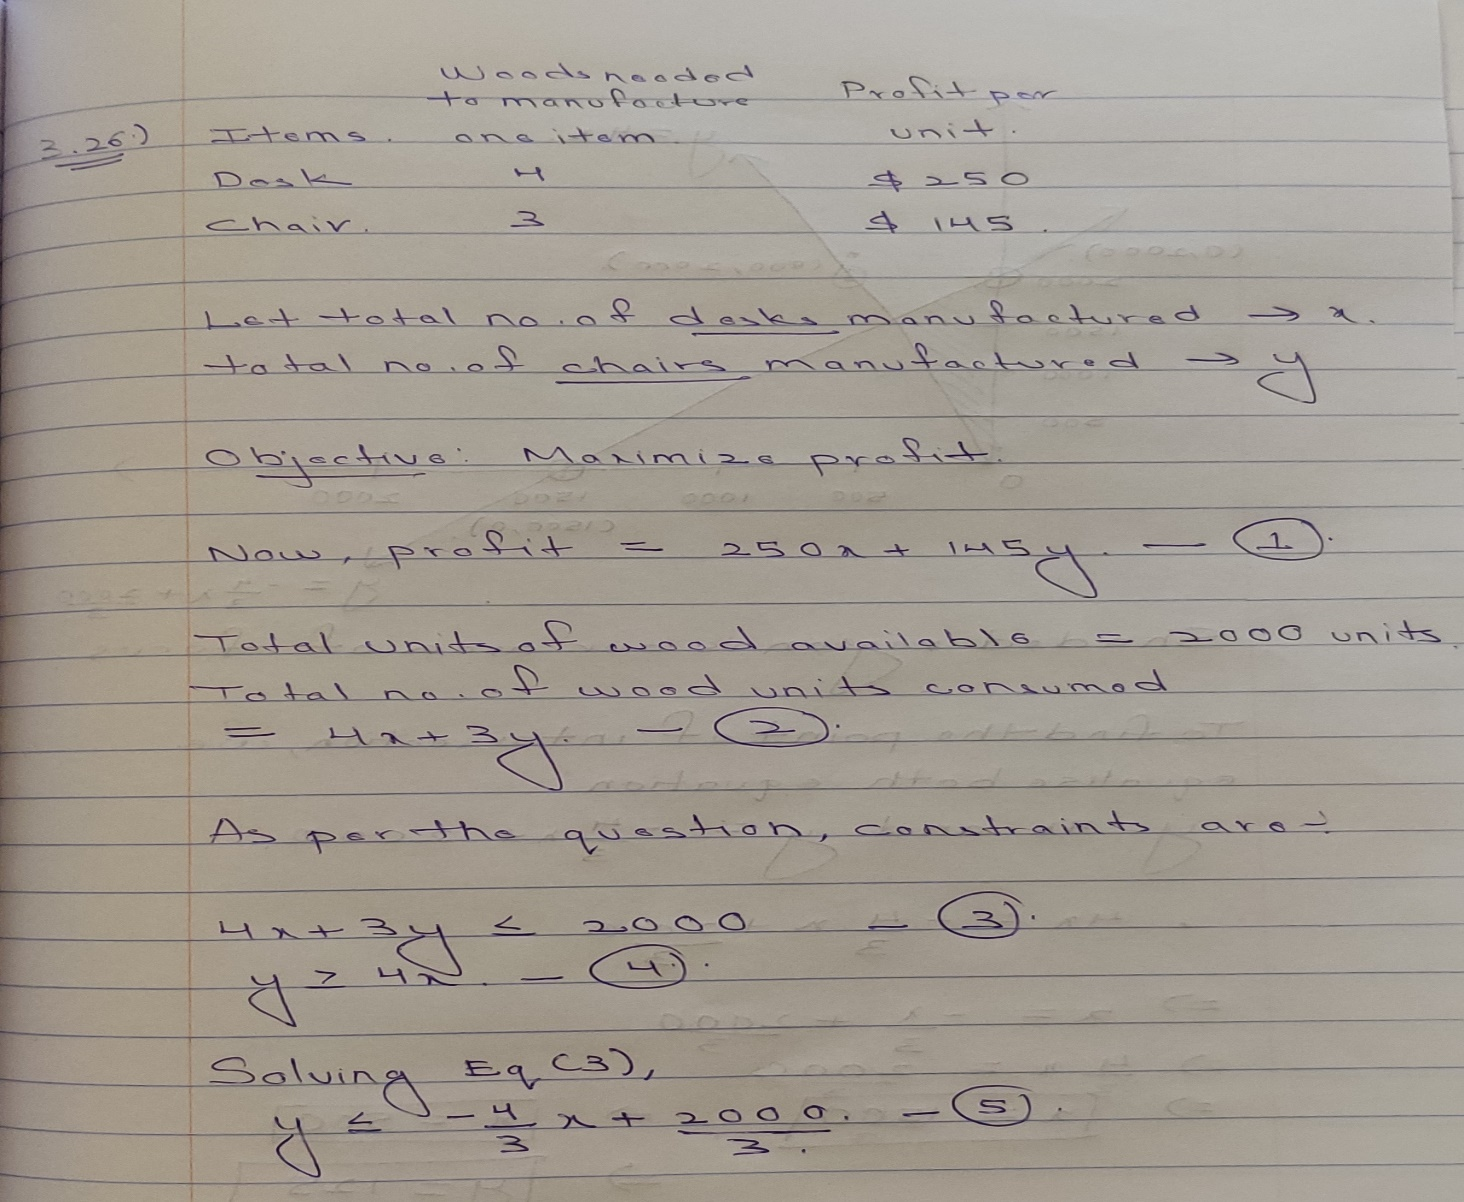 Woods needed
to manufacture Profit per
3.26.) Items. one item. unit.
Desk 4 $ 250
Chair. 3 $ 145.
Let total no. of desks manufactured → x.
total no. of chairs manufactured → y
Objective: Maximize profit.
Now, profit = 250x + 145y. — (1).
Total units of wood available = 2000 units.
Total no. of wood units consumed
= 4x + 3y. — (2).
As per the question, constraints are:-
4x + 3y ≤ 2000 — (3).
y ≥ 4x. — (4).
Solving Eq (3),
y ≤ -4/3 x + 2000/3. — (5).